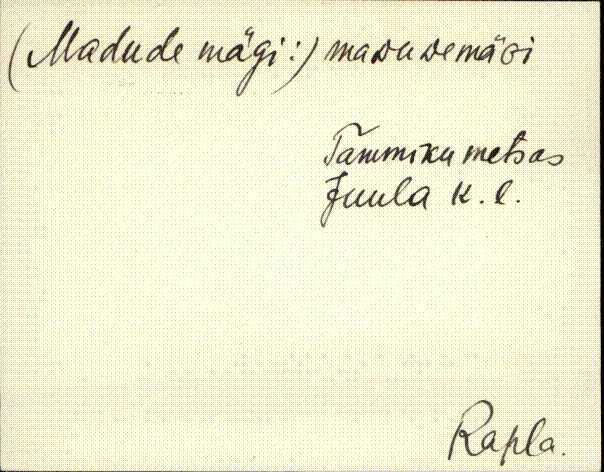 (Madude mägi:) maᴅuᴅemäɢi
Tammiku metsas
Juula k. l.
Rapla.